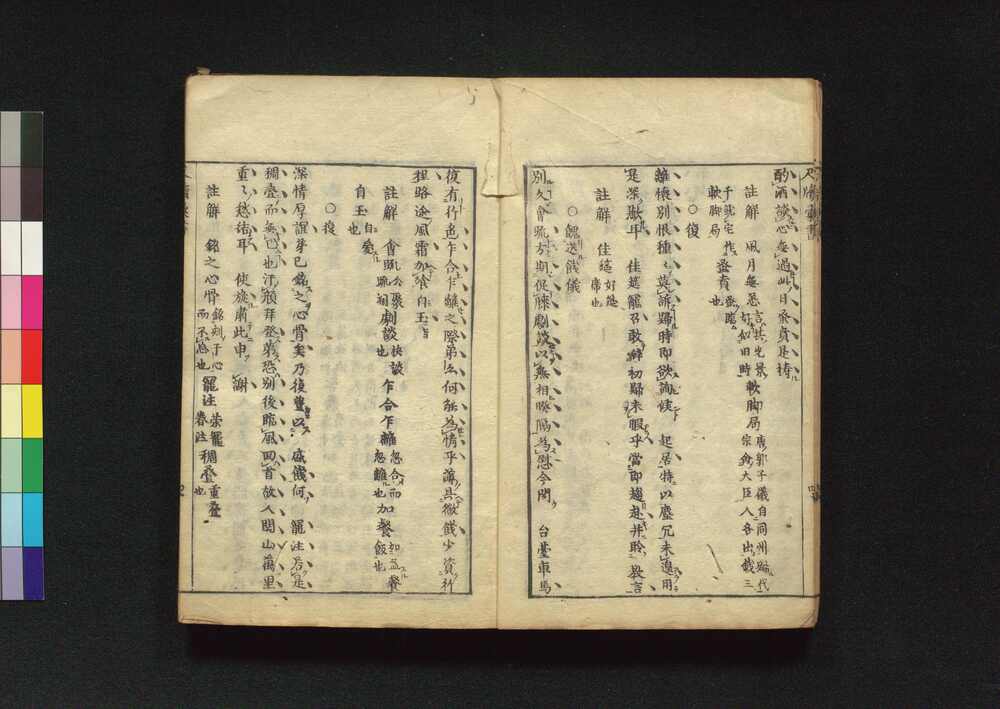 酌酒談心無過此日希賁是禱
註解 風月無恙言其光景如旧時 軟脚局 唐郭子儀自同州歸代宗令大臣人各出錢三千就宅作軟脚局 登賁 登臨也
○復
離懷別恨種々莫訴歸時即欲詢候 起居特以塵冗未遑用
是深歉耳 佳筵寵召敢辭初歸未暇乎當即趨赴并聆 教言
註解 佳筵 好筵席也
○餽送餞儀
別久會疏方期促膝劇談以無相暌隔為慰今聞 台臺車馬
復有行邑乍合乍離之際弟々何能為情乎薄具微餞少資行
程路途風霜加飡自玉
註解 會疏 公聚疏闊 劇談 快談也 乍合乍離 忽合而忽離也 加餐 加益餐飯也
自玉 自愛也
○復
深情厚誼芽已銘之心骨矣乃復重以 盛餞何 寵注若是
稠疊而無已也汗顏拜登第恐別後臨風回首故人関山萬里
重々愁結耳 使旋肅此申 謝
註解 銘之心骨 銘刻于心而不忘也 寵注 荣寵眷注 稠疊 重疊也